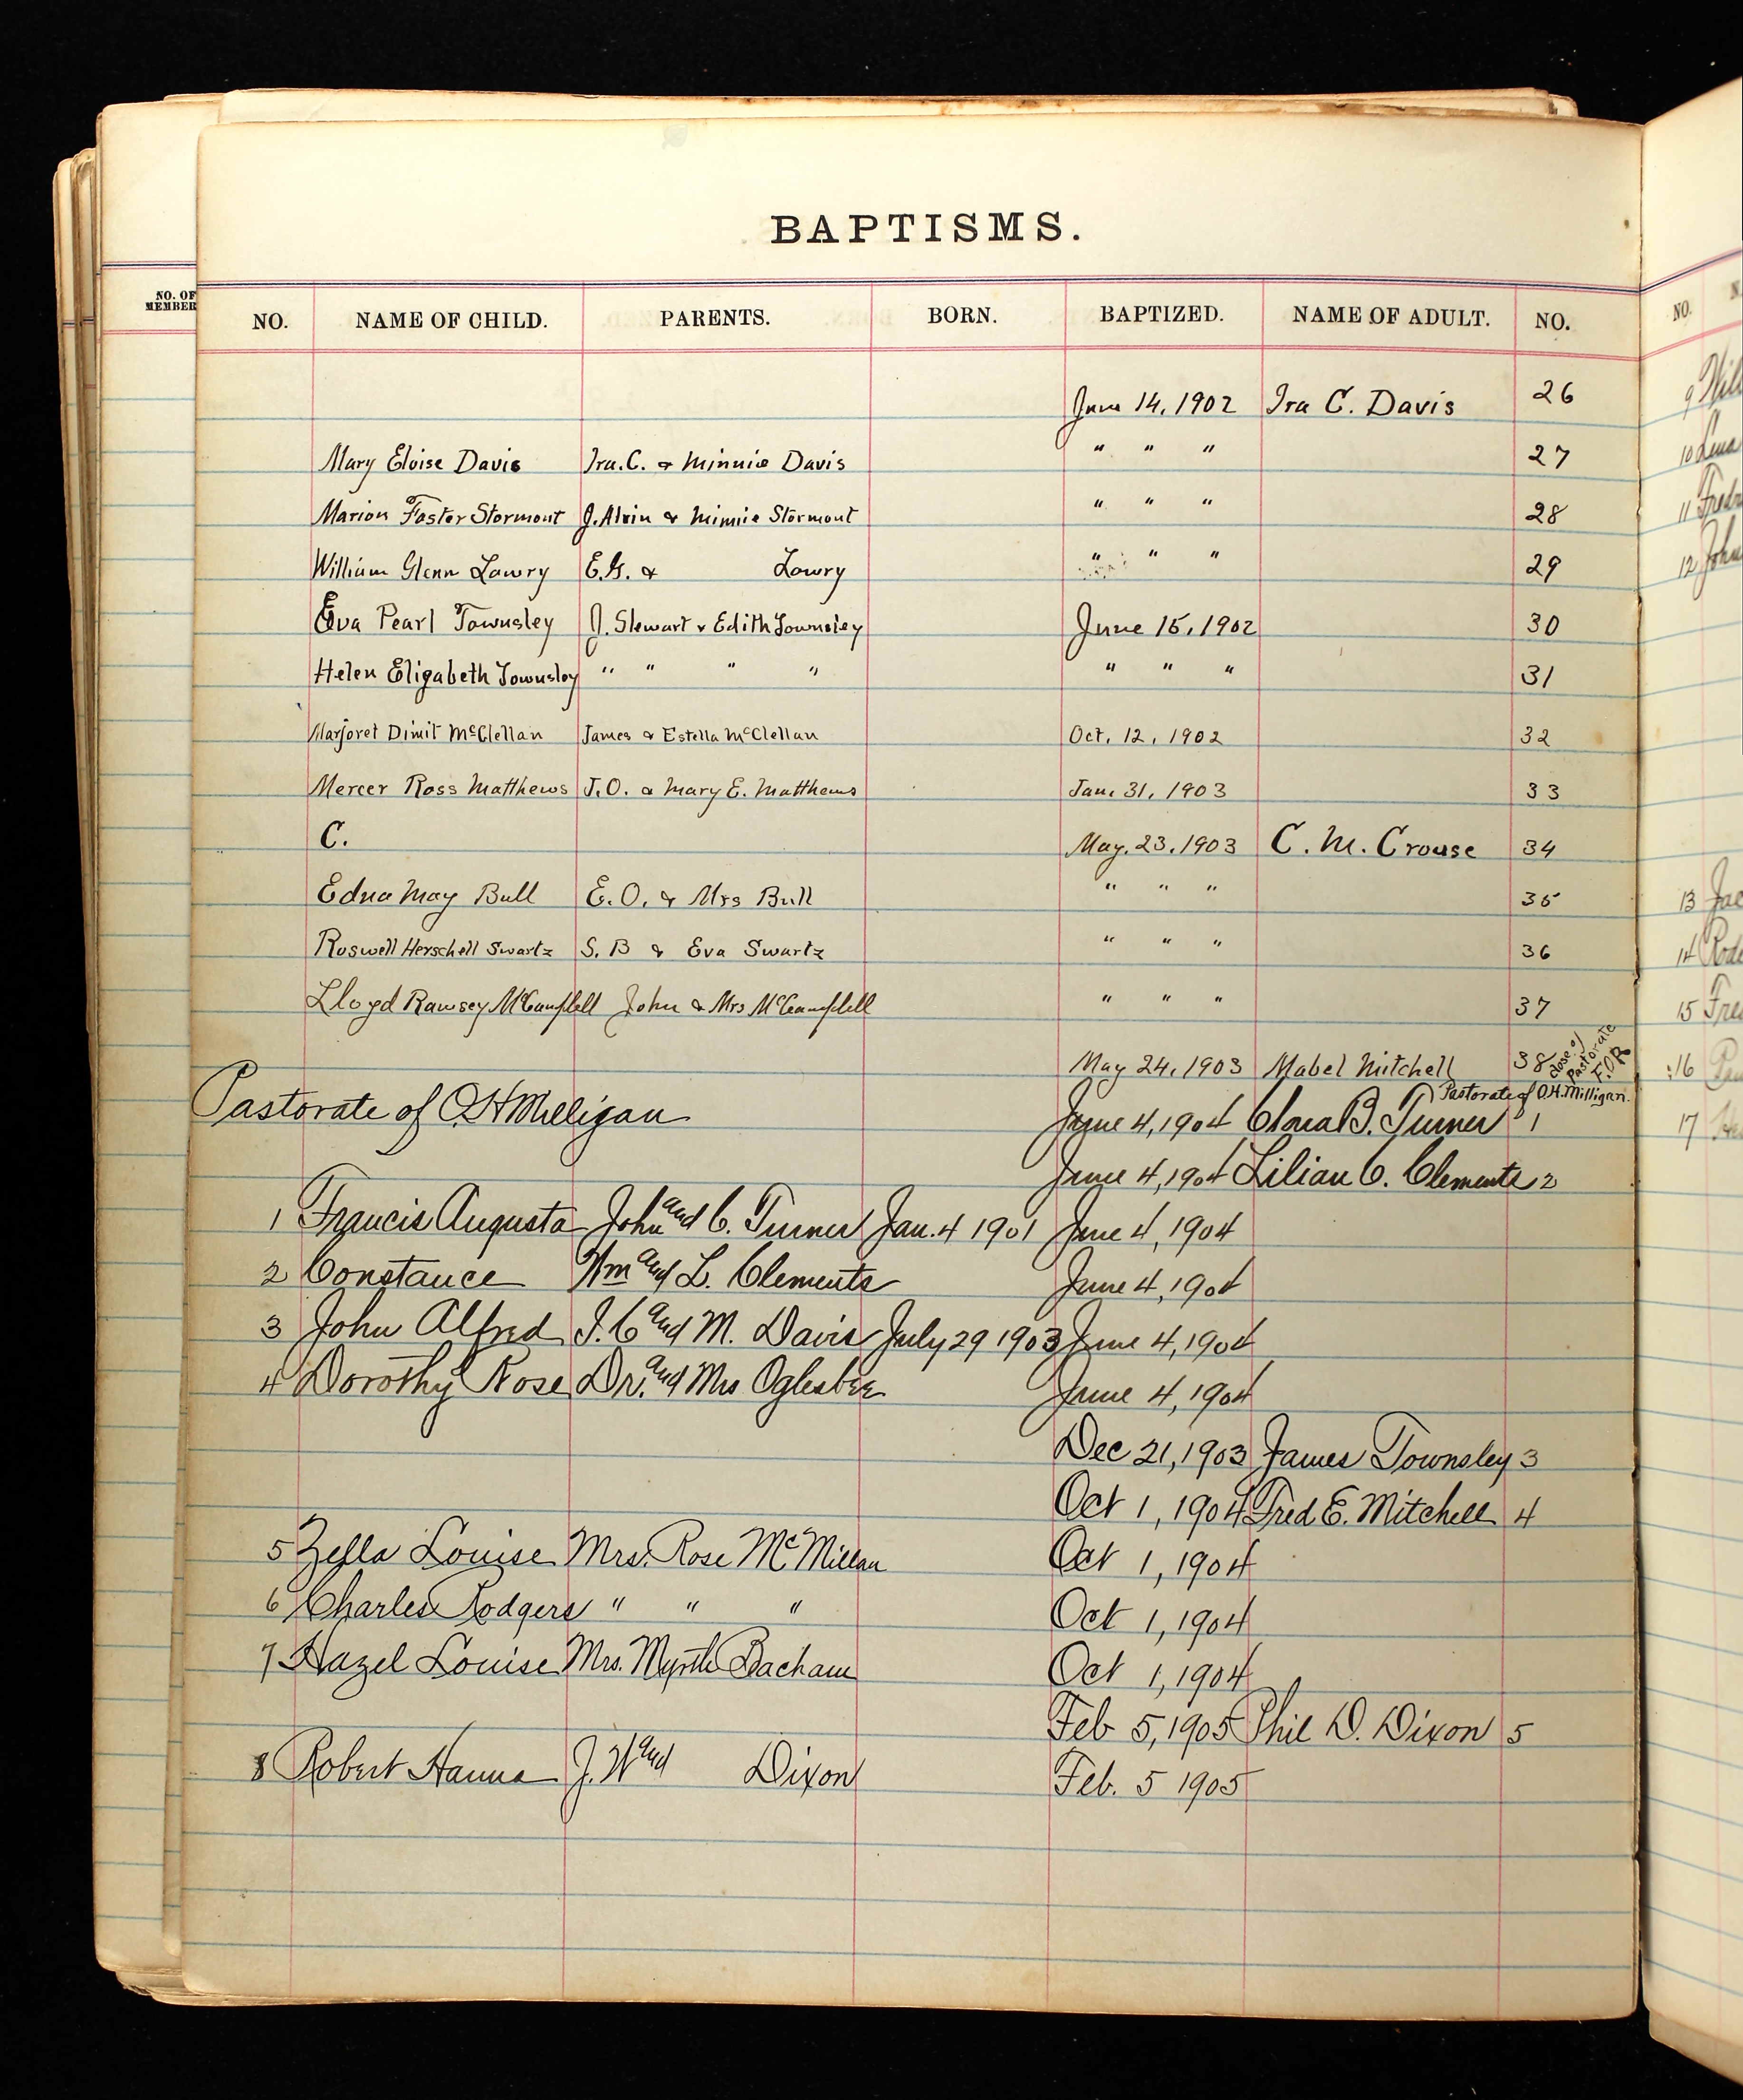 BAPTISMS.
NO. OF MEMBER
NO. NAME OF CHILD. PARENTS. BORN. BAPTIZED. NAME OF ADULT. NO.
June 14, 1902 Ira C. Davis 26
Mary Eloise Davis Ira. C. & Minnie Davis " " " 27
Marion Foster Stormont J. Alvin & Minnie Stormont " " " 28
William Glenn Lowry E.G. & Lowry " " " 29
Eva Pearl Townsley J. Stewart & Edith Townsley June 15, 1902 30
Helen Elizabeth Townsley " " " " " " " 31
Marjoret Dimit McClellan James & Estella McClellan Oct. 12, 1902 32
Mercer Ross Matthews J.O. & Mary E. Matthews Jan. 31, 1903 33
C. May. 23. 1903 C. M. Crouse 34
Edna May Bull E. O. & Mrs Bull " " " 35
Roswell Herschell Swartz S. B & Eva Swartz " " " 36
Lloyd Ramsey McCampbell John & Mrs McCampbell " " " 37
May 24, 1903 Mabel Mitchell 38 close of Pastorate F.O.R
Pastorate of O.H. Milligan.
Pastorate of O H Milligan June 4, 1904 Clara B. Turner 1
June 4, 1904 Lilian C. Clements 2
1 Francis Augusta John and C. Turner Jan. 4 1901 June 4, 1904
2 Constance Wm and L. Clements June 4, 1904
3 John Alfred I. C and M. Davis July 29 1903 June 4, 1904
4 Dorothy Rose Dr. and Mrs Oglesbee June 4, 1904
Dec 21, 1903 James Townsley 3
Oct 1, 1904 Fred E. Mitchell 4
5 Zella Louise Mrs. Rose McMillan Oct 1, 1904
6 Charles Rodgers " " " Oct 1, 1904
7 Hazel Louise Mrs. Myrtle Beacham Oct 1, 1904
Feb 5, 1905 Phil D. Dixon 5
8 Robert Hanna J. W and Dixon Feb. 5 1905
NO.
9
10
11
12 John
13
14
15
16
17